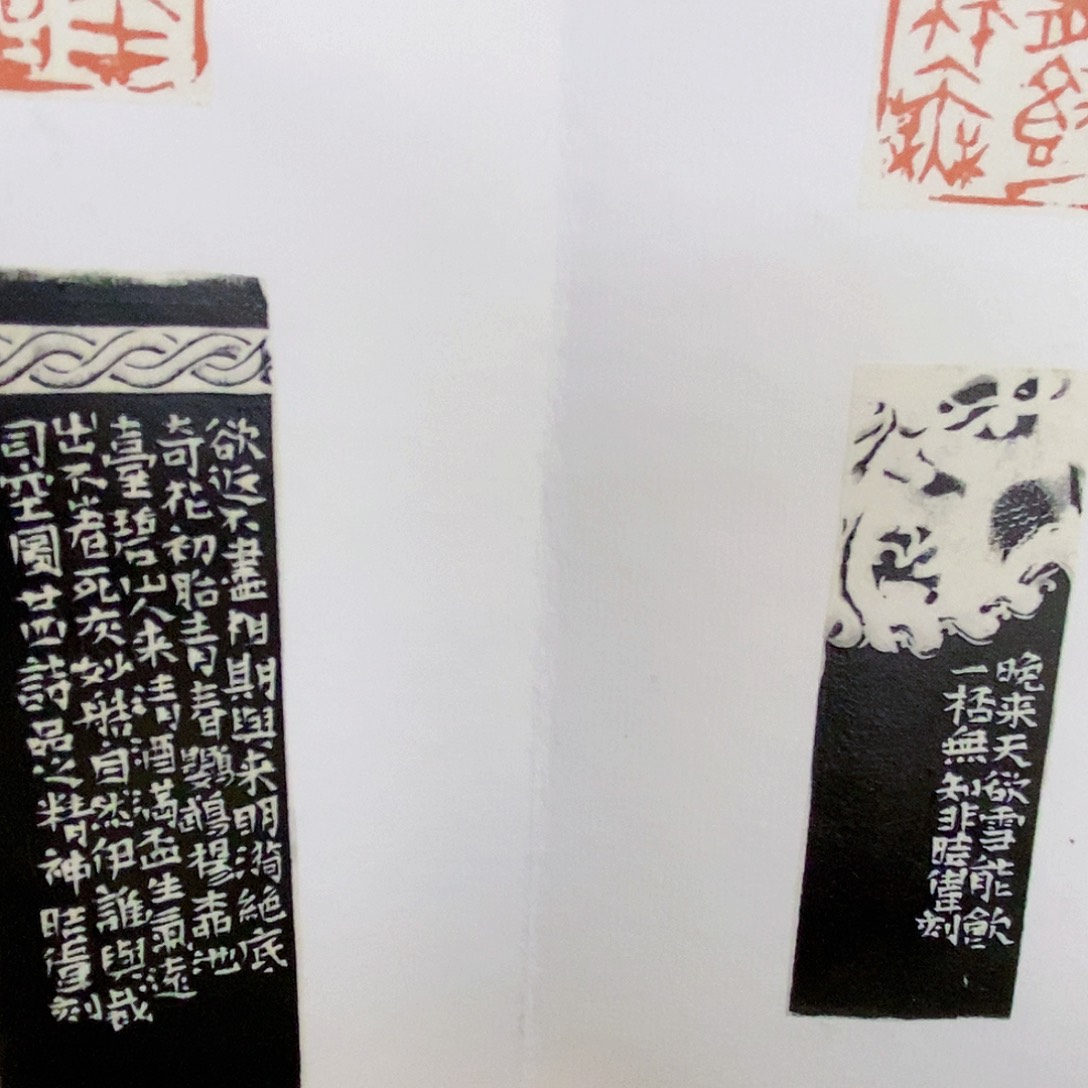 晚来天欲雪能飲
一桮無知非偉刻
欲返不盡相期與来明漪絶底
奇花初胎青春鸚鵡楊桺池
臺碧山人来清酒滿盃生氣遠
出不著死灰妙造自然伊誰與裁
司空圖廿四詩品之精神偉刻